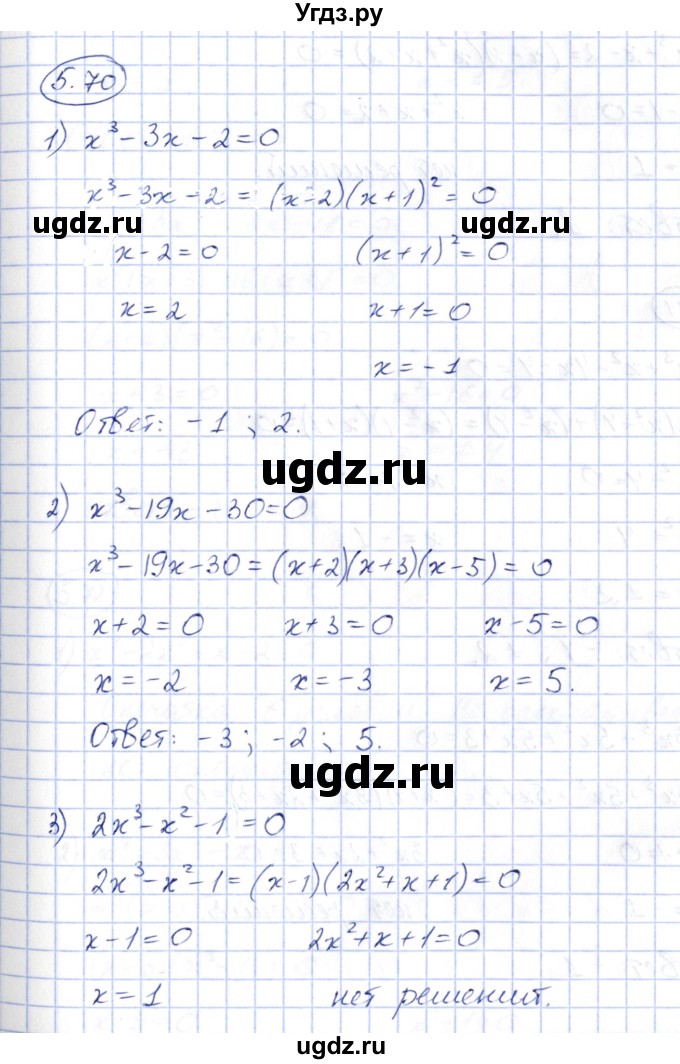 Угдз.ру
5.70
1) x³ - 3x - 2 = 0
x³ - 3x - 2 = (x - 2)(x + 1)² = 0
ugdz.ru ugdz.ru
x - 2 = 0 (x + 1)² = 0
x = 2 x + 1 = 0
x = - 1
Ответ: - 1 ; 2.
ugdz.ru
2) x³ - 19x - 30 = 0
x³ - 19x - 30 = (x + 2)(x + 3)(x - 5) = 0
x + 2 = 0 x + 3 = 0 x - 5 = 0
x = - 2 x = - 3 x = 5.
Ответ: - 3 ; - 2 ; 5.
ugdz.ru
3) 2x³ - x² - 1 = 0
2x³ - x² - 1 = (x - 1)(2x² + x + 1) = 0
x - 1 = 0 2x² + x + 1 = 0
x = 1 нет решений.
ugdz.ru ugdz.ru